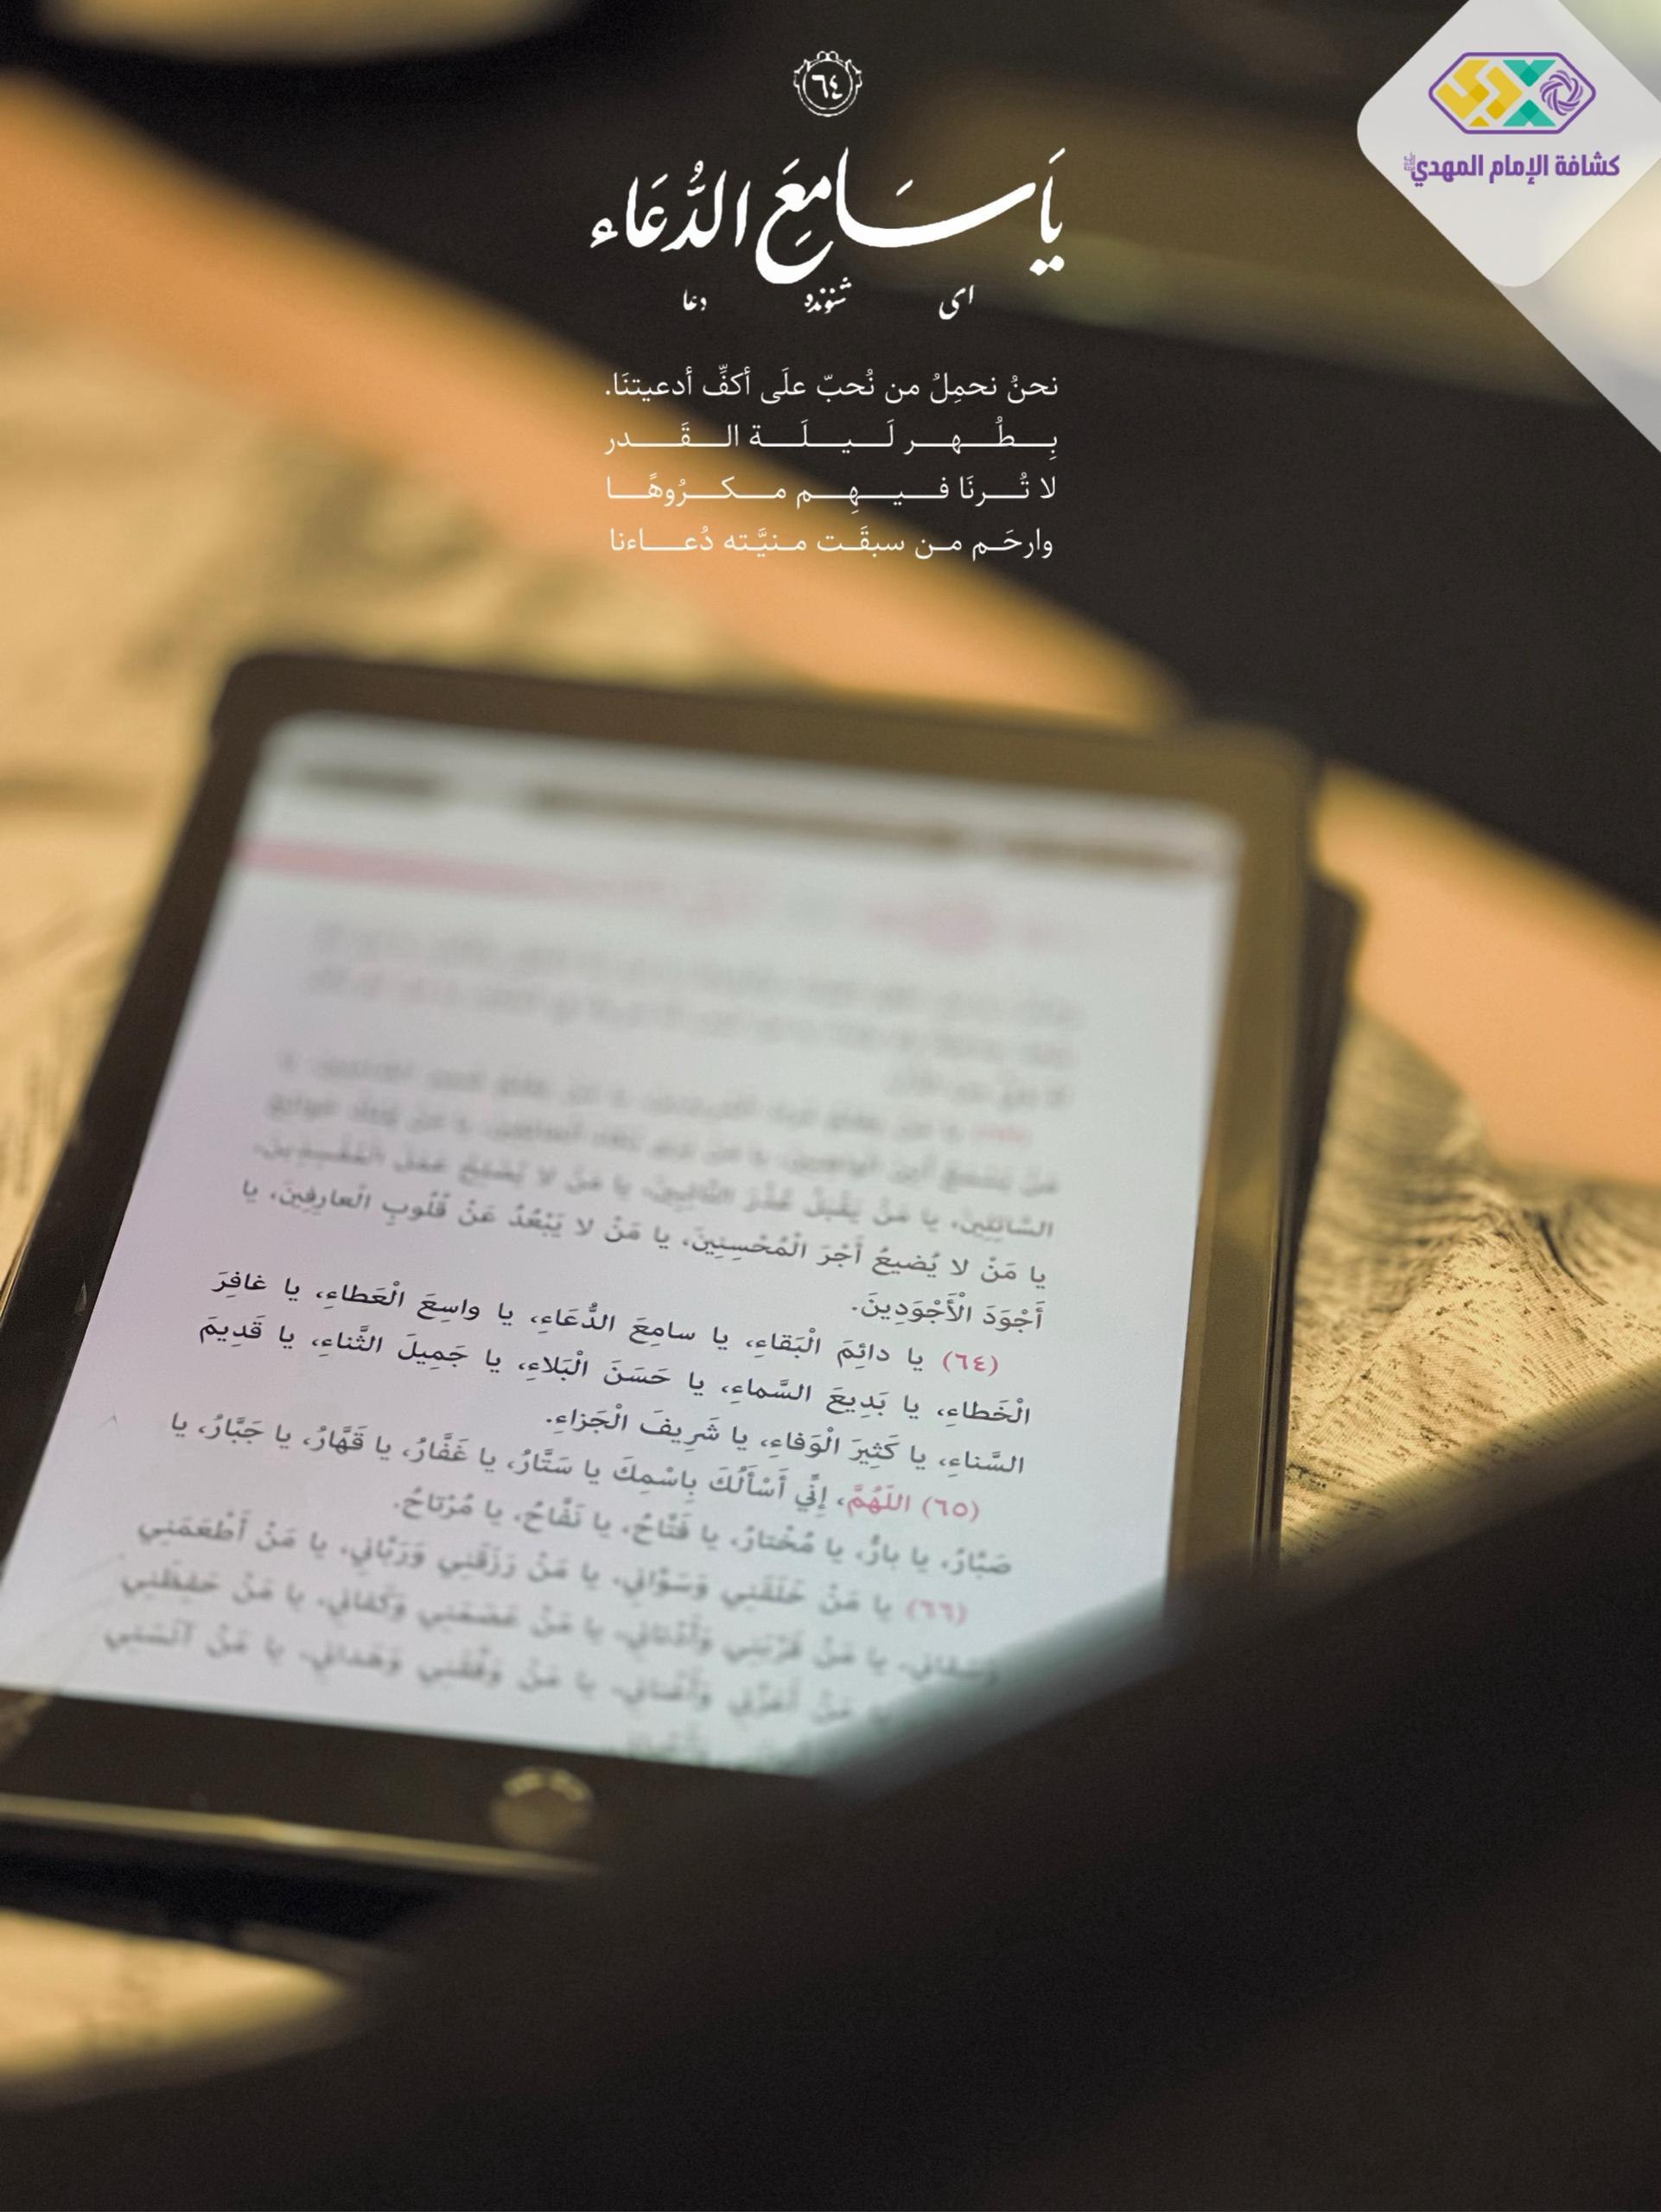 ٦٤
يَا سَامِعَ الدُّعَاء
ای شنونده دعا
كشافة الإمام المهدي
نحنُ نحمِلُ من نُحبّ علَى أكفِّ أدعيتنَا.
بِطُهر لَيلَة القَدر
لا تُرنَا فيهِم مكرُوهًا
وارحَم من سبقَت منيَّته دُعاءنا
السَّائِلِينَ، يا مَنْ يَقْبَلُ عُذْرَ التَّائِبِينَ، يا مَنْ لا يُصْلِحُ عَمَلَ الْمُفْسِدِينَ،
يا مَنْ لا يُضيعُ أَجْرَ الْمُحْسِنِينَ، يا مَنْ لا يَبْعُدُ عَنْ قُلُوبِ الْعارِفِينَ، يا
أَجْوَدَ الْأَجْوَدِينَ.
(٦٤) يا دائِمَ الْبَقاءِ، يا سامِعَ الدُّعَاءِ، يا واسِعَ الْعَطاءِ، يا غافِرَ
الْخَطاءِ، يا بَدِيعَ السَّماءِ، يا حَسَنَ الْبَلاءِ، يا جَمِيلَ الثَّناءِ، يا قَدِيمَ
السَّناءِ، يا كَثِيرَ الْوَفاءِ، يا شَرِيفَ الْجَزاءِ.
(٦٥) اللَهُمَّ، إِنِّي أَسْأَلُكَ بِاسْمِكَ يا سَتَّارُ، يا غَفَّارُ، يا قَهَّارُ، يا جَبَّارُ، يا
صَبَّارُ، يا بارُّ، يا مُخْتارُ، يا فَتَّاحُ، يا نَفَّاحُ، يا مُرْتاحُ.
(٦٦) يا مَنْ خَلَقَنِي وَسَوَّانِي، يا مَنْ رَزَقَنِي وَرَبَّانِي، يا مَنْ أَطْعَمَنِي
وَسَقانِي، يا مَنْ قَرَّبَنِي وَأَدْنانِي، يا مَنْ عَصَمَنِي وَكَفانِي، يا مَنْ حَفِظَنِي
مَنْ أَعَزَّنِي وَأَغْنانِي، يا مَنْ وَفَّقَنِي وَهَدانِي، يا مَنْ آنَسَنِي